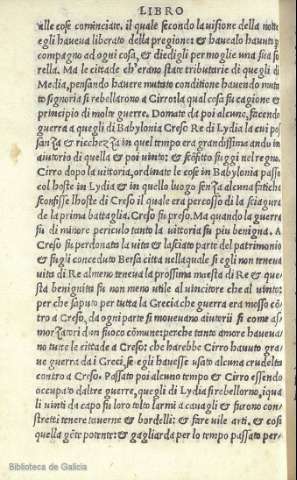 LIBRO
alle cose cominciate. il quale secondo la uisione della notte
egli haueua liberato della pregione: & hauealo hauuto p
compagno ad ogni cosa, & diedigli per moglie una sua so
rella. Ma le cittade ch'erano state tributarie di quegli di
Media, pensando hauere mutato conditione hauendo muta
to signoria si rebellarono a Cirro: la qual cosa fu cagione &
principio di molte guerre. Domate da poi alcune, facendo
guerra a quegli di Babylonia Creso Re di Lydia la cui pos
sanza & ricchezza in quel tempo era grandissima ando in
aiutorio di quella & poi uinto: & sconfitto fuggi nel regno.
Cirro dopo la uittoria, ordinate le cose in Babylonia passo
col hoste in Lydia & in quello luogo senza alcuna fatiche
sconfisse lhoste di Creso il quale era percosso di la sciagura
de la prima battaglia. Creso fu preso. Ma quando la guerra
fu di minore periculo tanto la uittoria fu piu benigna. A
Creso fu perdonata la uita & lasciato parte del patrimonio
& fugli conceduto Bersa citta nella quale se egli non teneua
uita di Re almeno teneua la prossima maesta di Re & que
sta benignita fu non meno utile al uincitore che al uinto:
per che saputo per tutta la Grecia che guerra era messo cō
tro a Creso, da ogni parte si moueuano aiutorii si come as
morzatori dun fuoco cōmune: perche tanto amore haueua
no tutte le cittade a Creso: che harebbe Cirro hauuto gra
ue guerra da i Greci, se egli hauesse usato alcuna crudelta
contro a Creso. Passato poi alcuno tempo & Cirro essendo
occupato daltre guerre, quegli di Lydia si rebellorno, i qua
li uinti da capo fu loro tolto larmi a cauagli & furono con
stretti tenere tauerne & bordelli: & fare uile arti. & cosi
quella gēte potente: & gagliarda per lo tempo passato per-
Biblioteca de Galicia